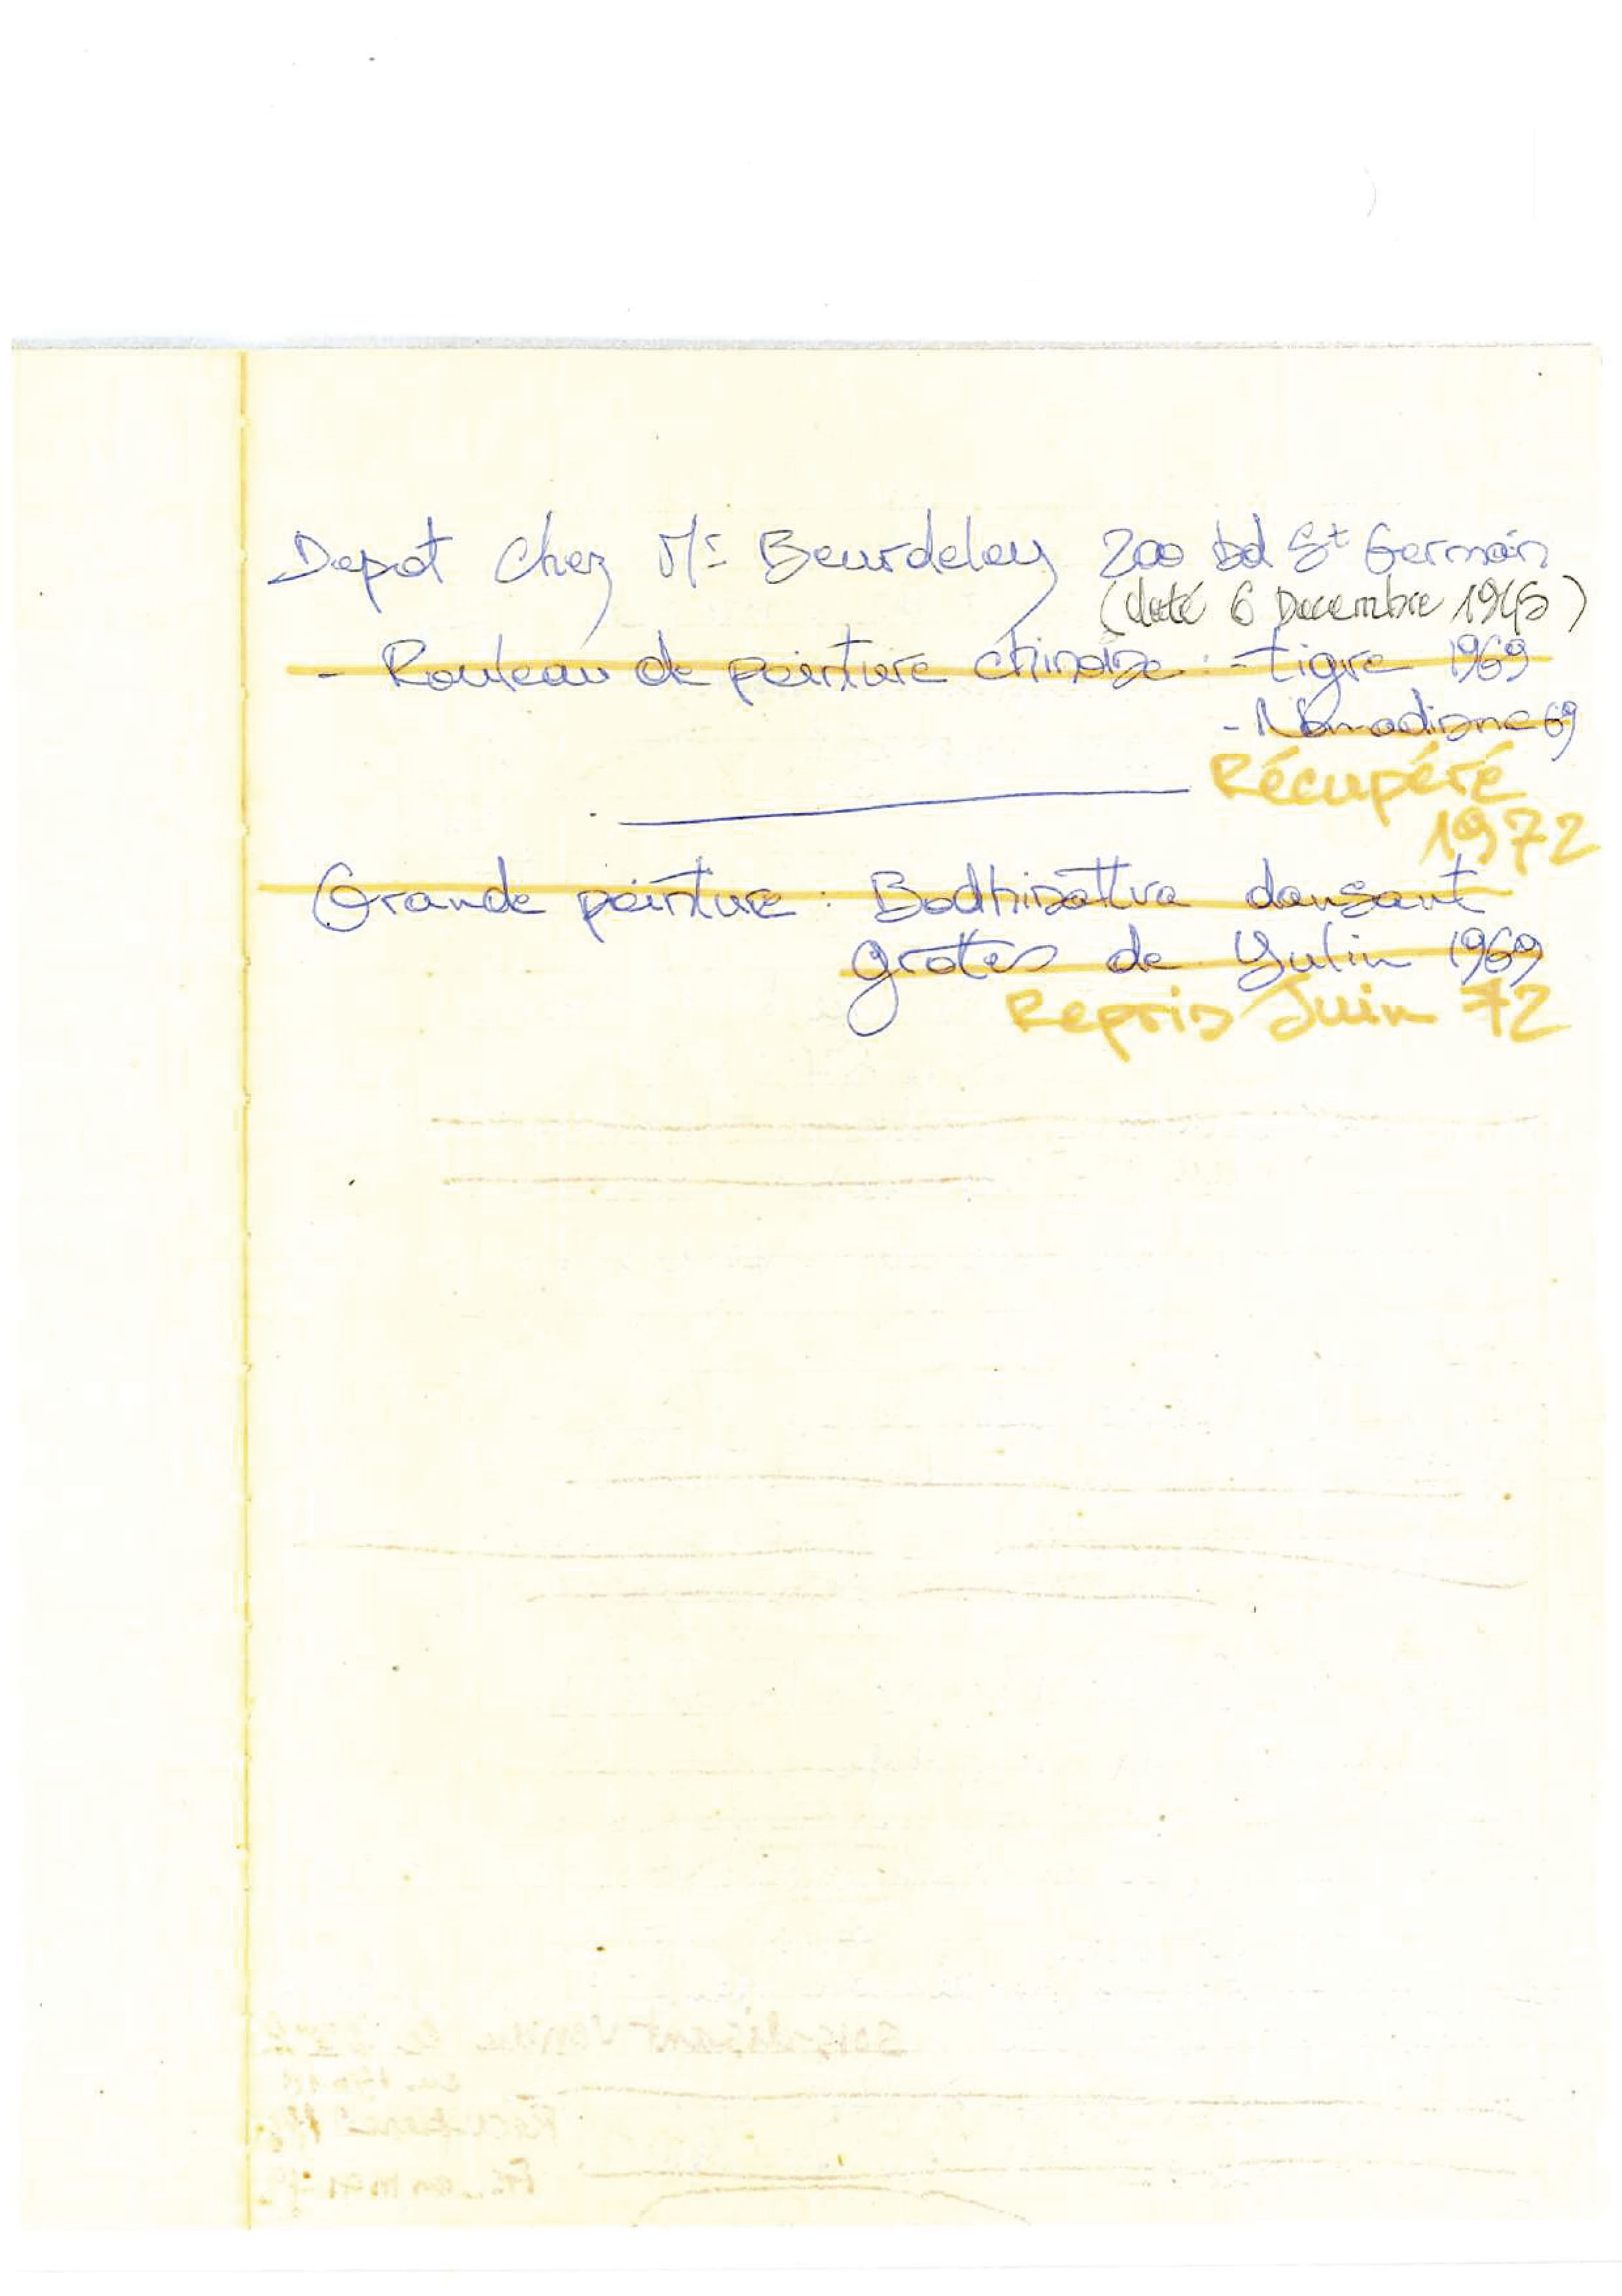 Depot chez Mr Beurdeley 200 bd St Germain
(daté 6 Decembre 1945)
- Rouleau de peinture chinoise : - tigre 1969
- Nomadisme 69
Récupéré
1972
Grande peinture : Bodhisattva dansant
grottes de Yulin 1969
Repris Juin 72